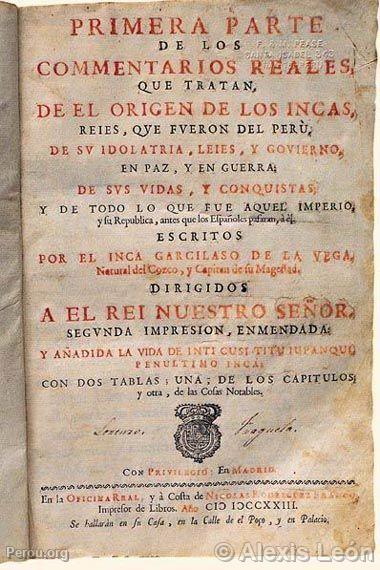 PRIMERA PARTE
DE LOS
COMMENTARIOS REALES,
QUE TRATAN,
DE EL ORIGEN DE LOS INCAS,
REIES, QVE FVERON DEL PERÙ,
DE SV IDOLATRIA, LEIES, Y GOVIERNO,
EN PAZ, Y EN GUERRA;
DE SVS VIDAS, Y CONQUISTAS;
Y DE TODO LO QUE FUE AQUEL IMPERIO,
y su Republica, antes que los Españoles pasaran, à èl.
ESCRITOS
POR EL INCA GARCILASO DE LA VEGA,
Natural del Cozco, y Capitan de su Magestad.
DIRIGIDOS
A EL REI NUESTRO SEÑOR.
SEGVNDA IMPRESION, ENMENDADA;
Y AÑADIDA LA VIDA DE INTI CUSI TITU IUPANQUI,
PENULTIMO INCA;
CON DOS TABLAS; UNA; DE LOS CAPITULOS;
y otra, de las Cosas Notables.
Lorenzo.
CON PRIVILEGIO: EN MADRID.
En la OFICINA REAL, y à Costa de NICOLAS RODRIGUEZ FRANCO,
Impresor de Libros. Año CIↃ IↃCCXXIII.
Se hallaràn en su Casa, en la Calle de el Poço, y en Palacio.
Perou.org
© Alexis León